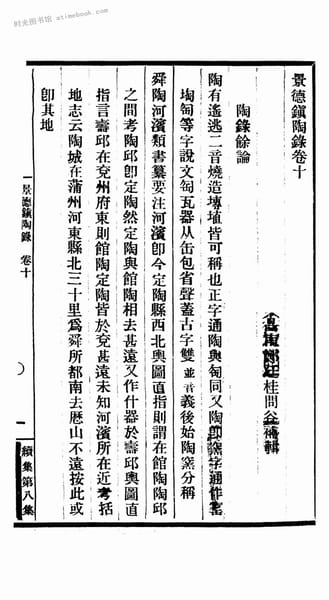 时光图书馆 · atimebook.com
景德鎮陶錄卷十
桂問谷補輯
陶錄餘論
陶有遙逃二音燒造塼埴皆可稱也正字通陶與匋同又陶卽窯字通作窰
匋等字說文匋瓦器从缶包省聲蓋古字雙並音義後始陶窯分稱
舜陶河濱類書纂要注河濱卽今定陶縣西北輿圖直指則謂在館陶陶邱
之間考陶邱卽定陶然定陶與館陶相去甚遠又作什器於壽邱輿圖直
指言壽邱在兗州府東則館陶定陶皆於兗甚遠未知河濱所在近考括
地志云陶城在蒲州河東縣北三十里爲舜所都南去歷山不遠按此或
卽其地
景德鎮陶錄 卷十
一
續集第八集